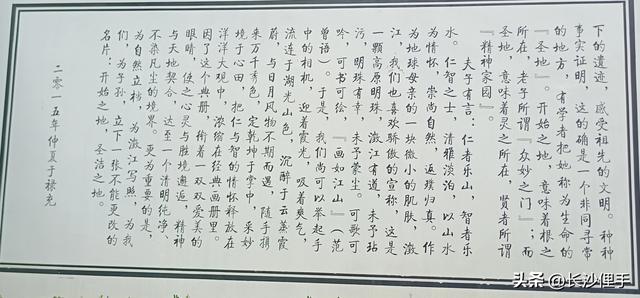 下的遗迹，感受祖先的文明。种种
事实证明，这的确是一个非同寻常
的地方，有学者把她称为生命的
『圣地』。开始之地，意味着根之
所在，老子所谓『众妙之门』；而
圣地，意味着灵之所在，贤者所谓
『精神家园』。
夫子有言：仁者乐山，智者乐
水。仁智之士，清雅淡泊，以山水
为情怀，崇尚自然，返璞归真。作
为地球母亲的一块微小的肌肤，澂
江，我们也喜欢骄傲的宣称，这是
一颗高原明珠，澂江有道，未予玷
污，明珠有幸，未予蒙尘。可歌可
吟，可书可绘，『画如江山』（范
曾语）。于是，我们尚可以举起手
中的相机，迎着霞光，吸着爽气，
流连于湖光山色，沉醉于云蒸霞
蔚，与日月风物不期而遇，随手撷
来万千秀色，定乾坤于掌中，采妙
境于心田，把仁与智的情怀释放在
洋洋大观中，浓缩在经典画册里。
因了这个典册，衔着一双双爱美的
眼睛，使之心灵与胜境邂逅，精神
与天地契合，达至一个清明纯净、
不染凡尘的境界。更为重要的是，
为自然立榜，为澂江写照，为我
们，为子孙，立下一张不能更改的
名片：开始之地，圣洁之地。
二零一五年仲夏于禄充
头条@长沙俚手